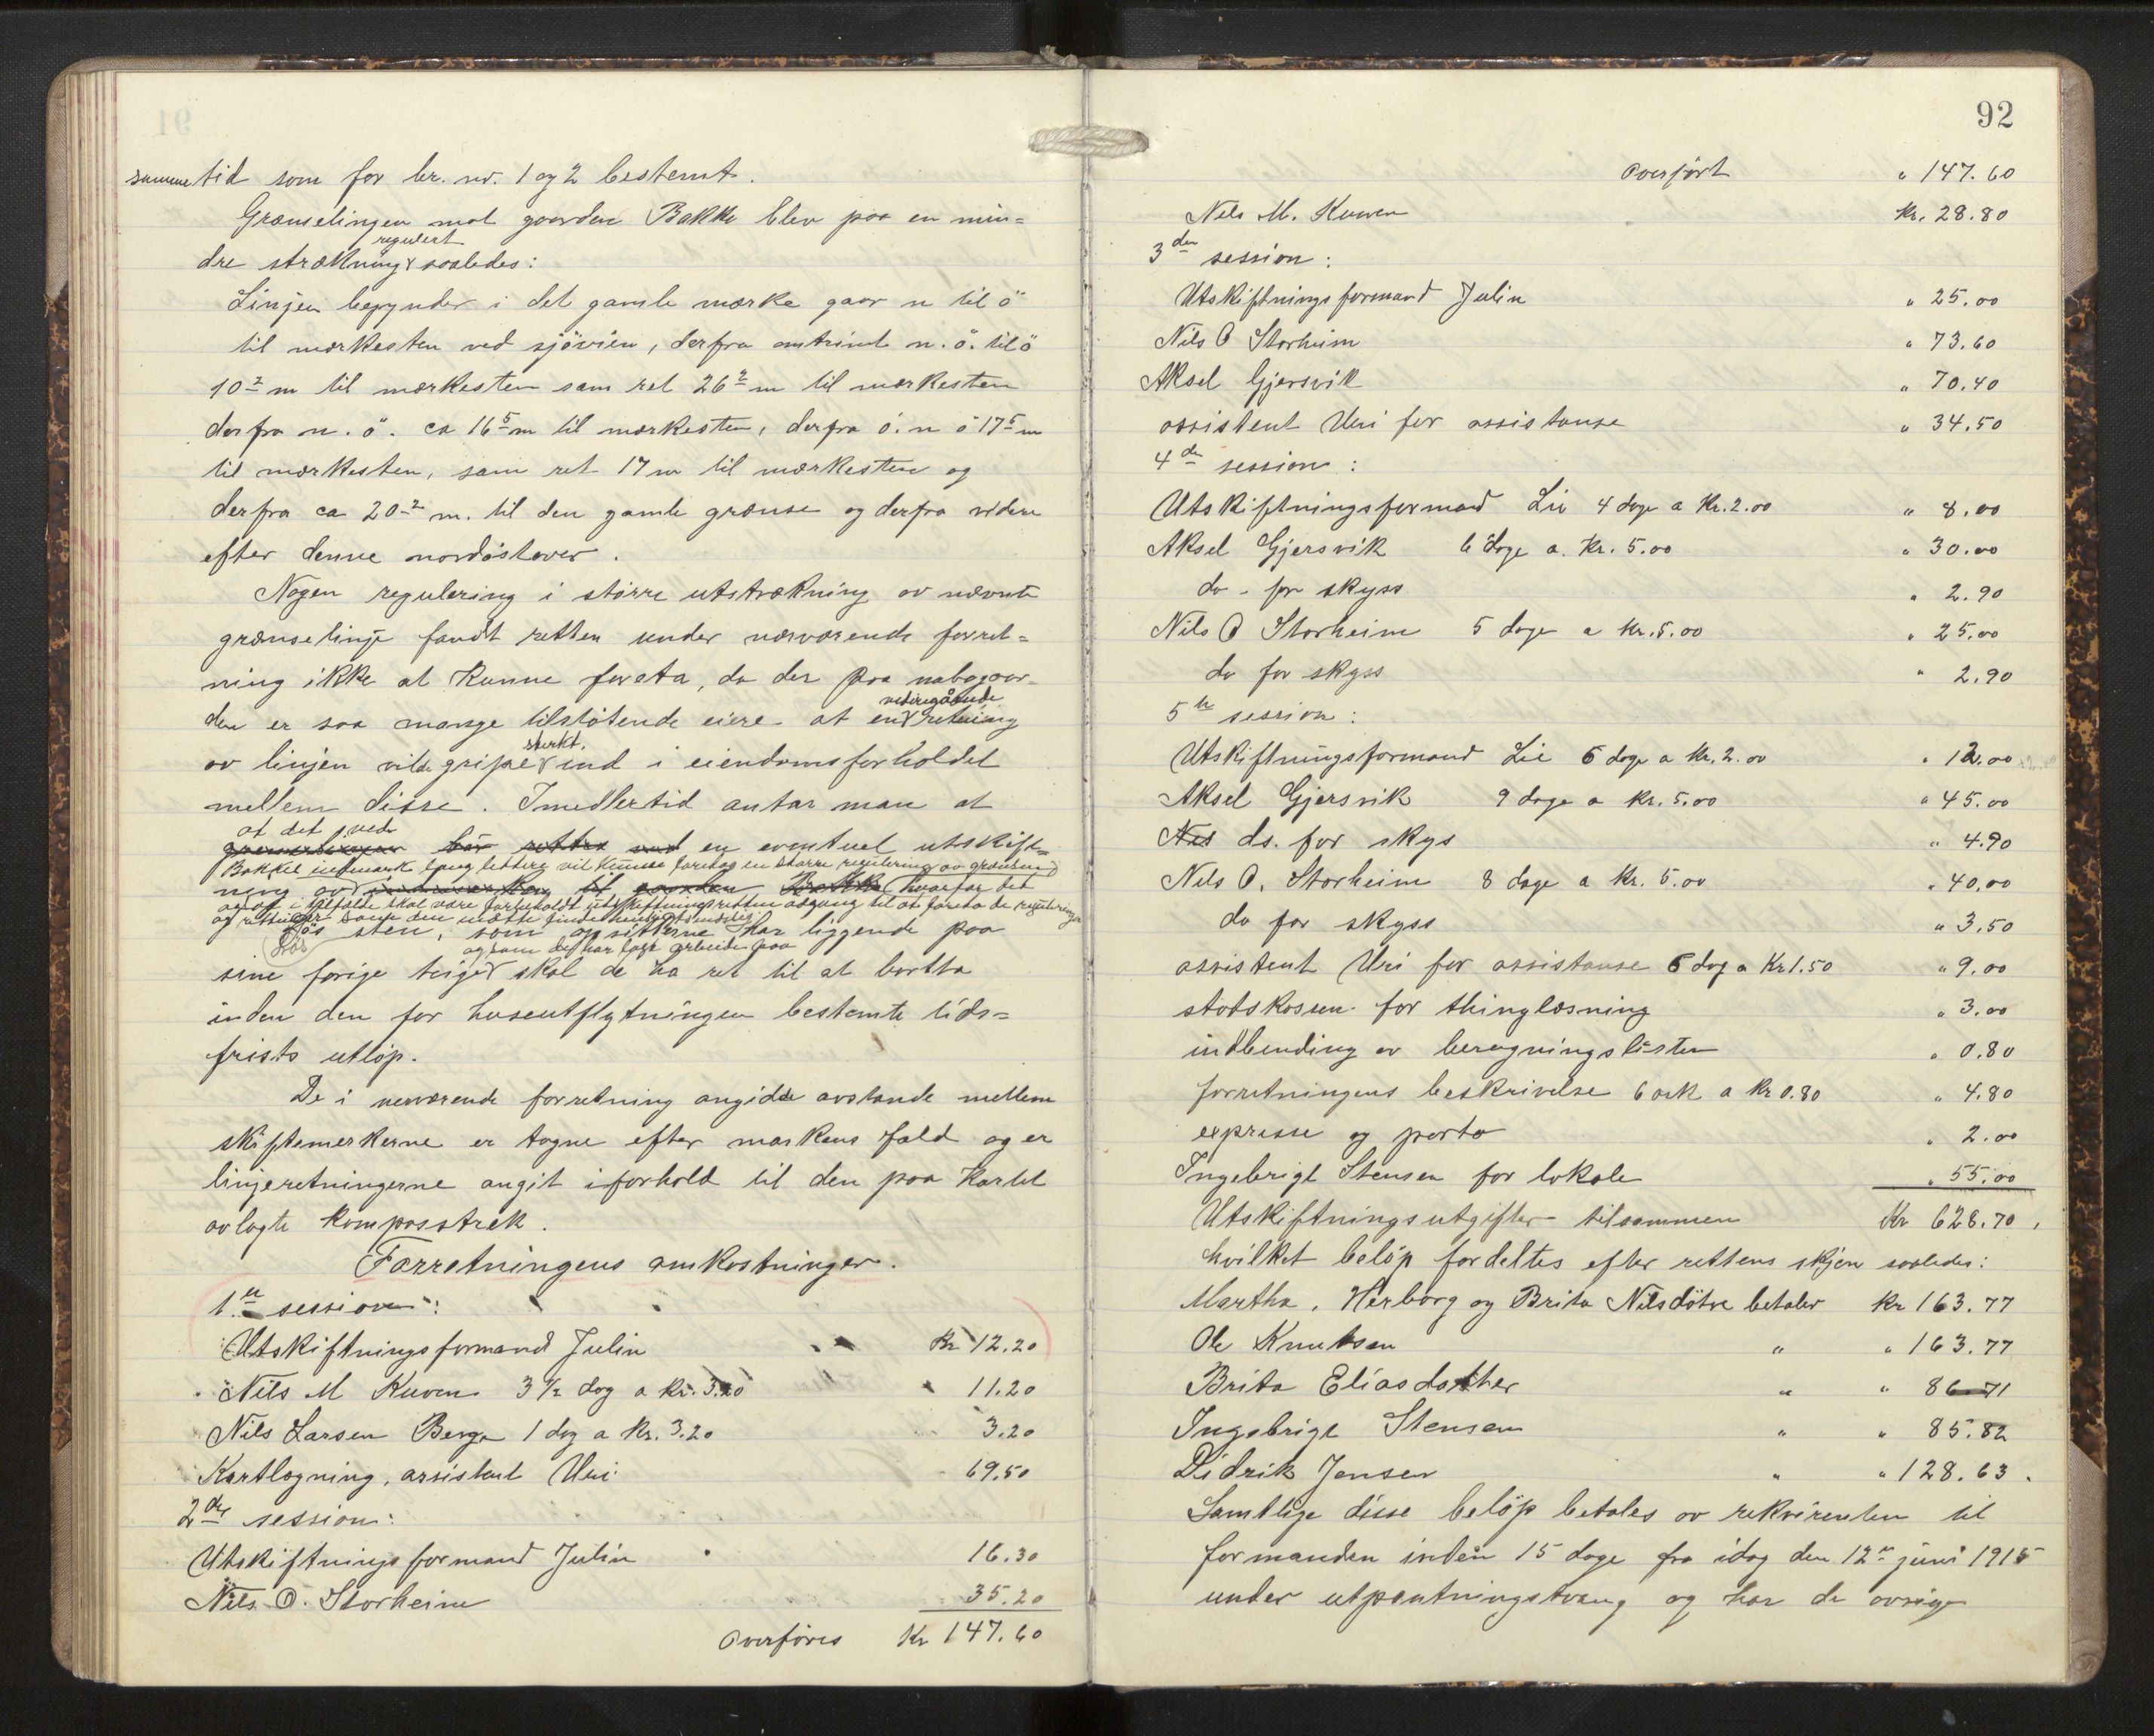 samme tid som for br. nr. 1 og 2 bestemt.
Grænselingen mot gaarden Bakke blev paa en min=
dre strækning regulert saaledes:
Linjen begynder i det gamle mærke gaar n til ö
til mærkesten ved sjöveien, derfra omtrint n. ö. til ö
10² m til mærkesten sam ret 26² m til mærkesten
derfra n. ö. ca 16⁵ m til mærkesten, derfra ö. n ö 17⁵ m
til mærkesten, sam ret 17 m til mærkesten og
derfra ca 20² m. til den gamle grænse og derfra videre
efter denne nordöstover.
Nogen regulering i större utstrækning av nævnte
grænselinje fandt retten under nærværende forret=
ning ikke at kunne foreta, da der paa nabogaar-
den er saa mange tilstötende eiere at en vidregående retning
av linjen vilde gripe sterkt ind i eiendomsforholdet
mellem disse. Imedlertid antar man at
at det ved en eventuel utskift=
ning av Bakke indmark lang lettere vil kunne foretag en större regulering av grænsen hvorfor det
i tilfælde skal være forbeholdt utskiftningsretten adgang til at foreta de reguleringer
som den maatte finde
Lös sten, som opsitterne har liggende paa
sine forige teiger og som de har lagt arbeide paa skal de ha ret til at bortta
inden den for huseutflytningen bestemte tids=
frists utlöp.
De i nerværende forretning angidde avstande mellem
skiftemerkerne er tagne efter markens fald og er
linjeretningerne angit i forhold til den paa kartet
avlagte kompasstrek.
Forretningens omkostninger.
1ste session:
Utskiftningsformand Julin Kr 12.20
Nils M Kuven 3 1/2 dag a kr. 3.20 11.20
Nils Larsen Berge 1 dag a kr. 3.20 3.20
Kartlægning, assistent Uri 69.50
2den session:
Utskiftningsformand Julin 16.30
Nils O. Storheim 35.20
Overföres Kr 147.60
92
Overfört " 147.60
Nils M. Kuven Kr. 28.80
3den session:
Utskiftningsformand Julin " 25.00
Nils O Storheim " 73.60
Aksel Gjersvik " 70.40
assistent Uri for assistanse " 34.50
4de session:
Utskiftningsformand Lie 4 dage a Kr. 2.00 " 8.00
Aksel Gjersvik 6 dage a. Kr. 5.00 " 30.00
do - for skyss " 2.90
Nils O Storheim 5 dage a kr. 5.00 " 25.00
do for skyss " 2.90
5te session:
Utskiftningsformand Lie 6 dage a kr. 2.00 " 12.00
Aksel Gjersvik 9 dage a kr. 5.00 " 45.00
Nils do. for skys " 4.90
Nils O. Storheim 8 dage a kr. 5.00 " 40.00
do for skyss " 3.50
assistent Uri for assistanse 6 dag a Kr 1.50 " 9.00
statskassen for thinglæsning " 3.00
indbending av beregningslisten " 0.80
forretningens beskrivelse 6 ark a kr 0.80 " 4.80
expresse og porto " 2.00
Ingebrigt Stensen for lokale " 55.00
Utskiftningsutgifter tilsammen Kr 628.70,
hvilket belöp fordeltes efter rettens skjön saaledes:
Martha, Herborg og Brita Nilsdötre betaler kr 163.77
Ole Knutsen " " 163.77
Brita Eliasdatther " " 86.71
Ingebrigt Stensen " " 85.82
Didrik Jensen " " 128.63.
Samtlige disse belöp betales av rekvirenten til
formanden inden 15 dage fra idag den 12te juni 1915
under utpantningstvang og har de øvrige